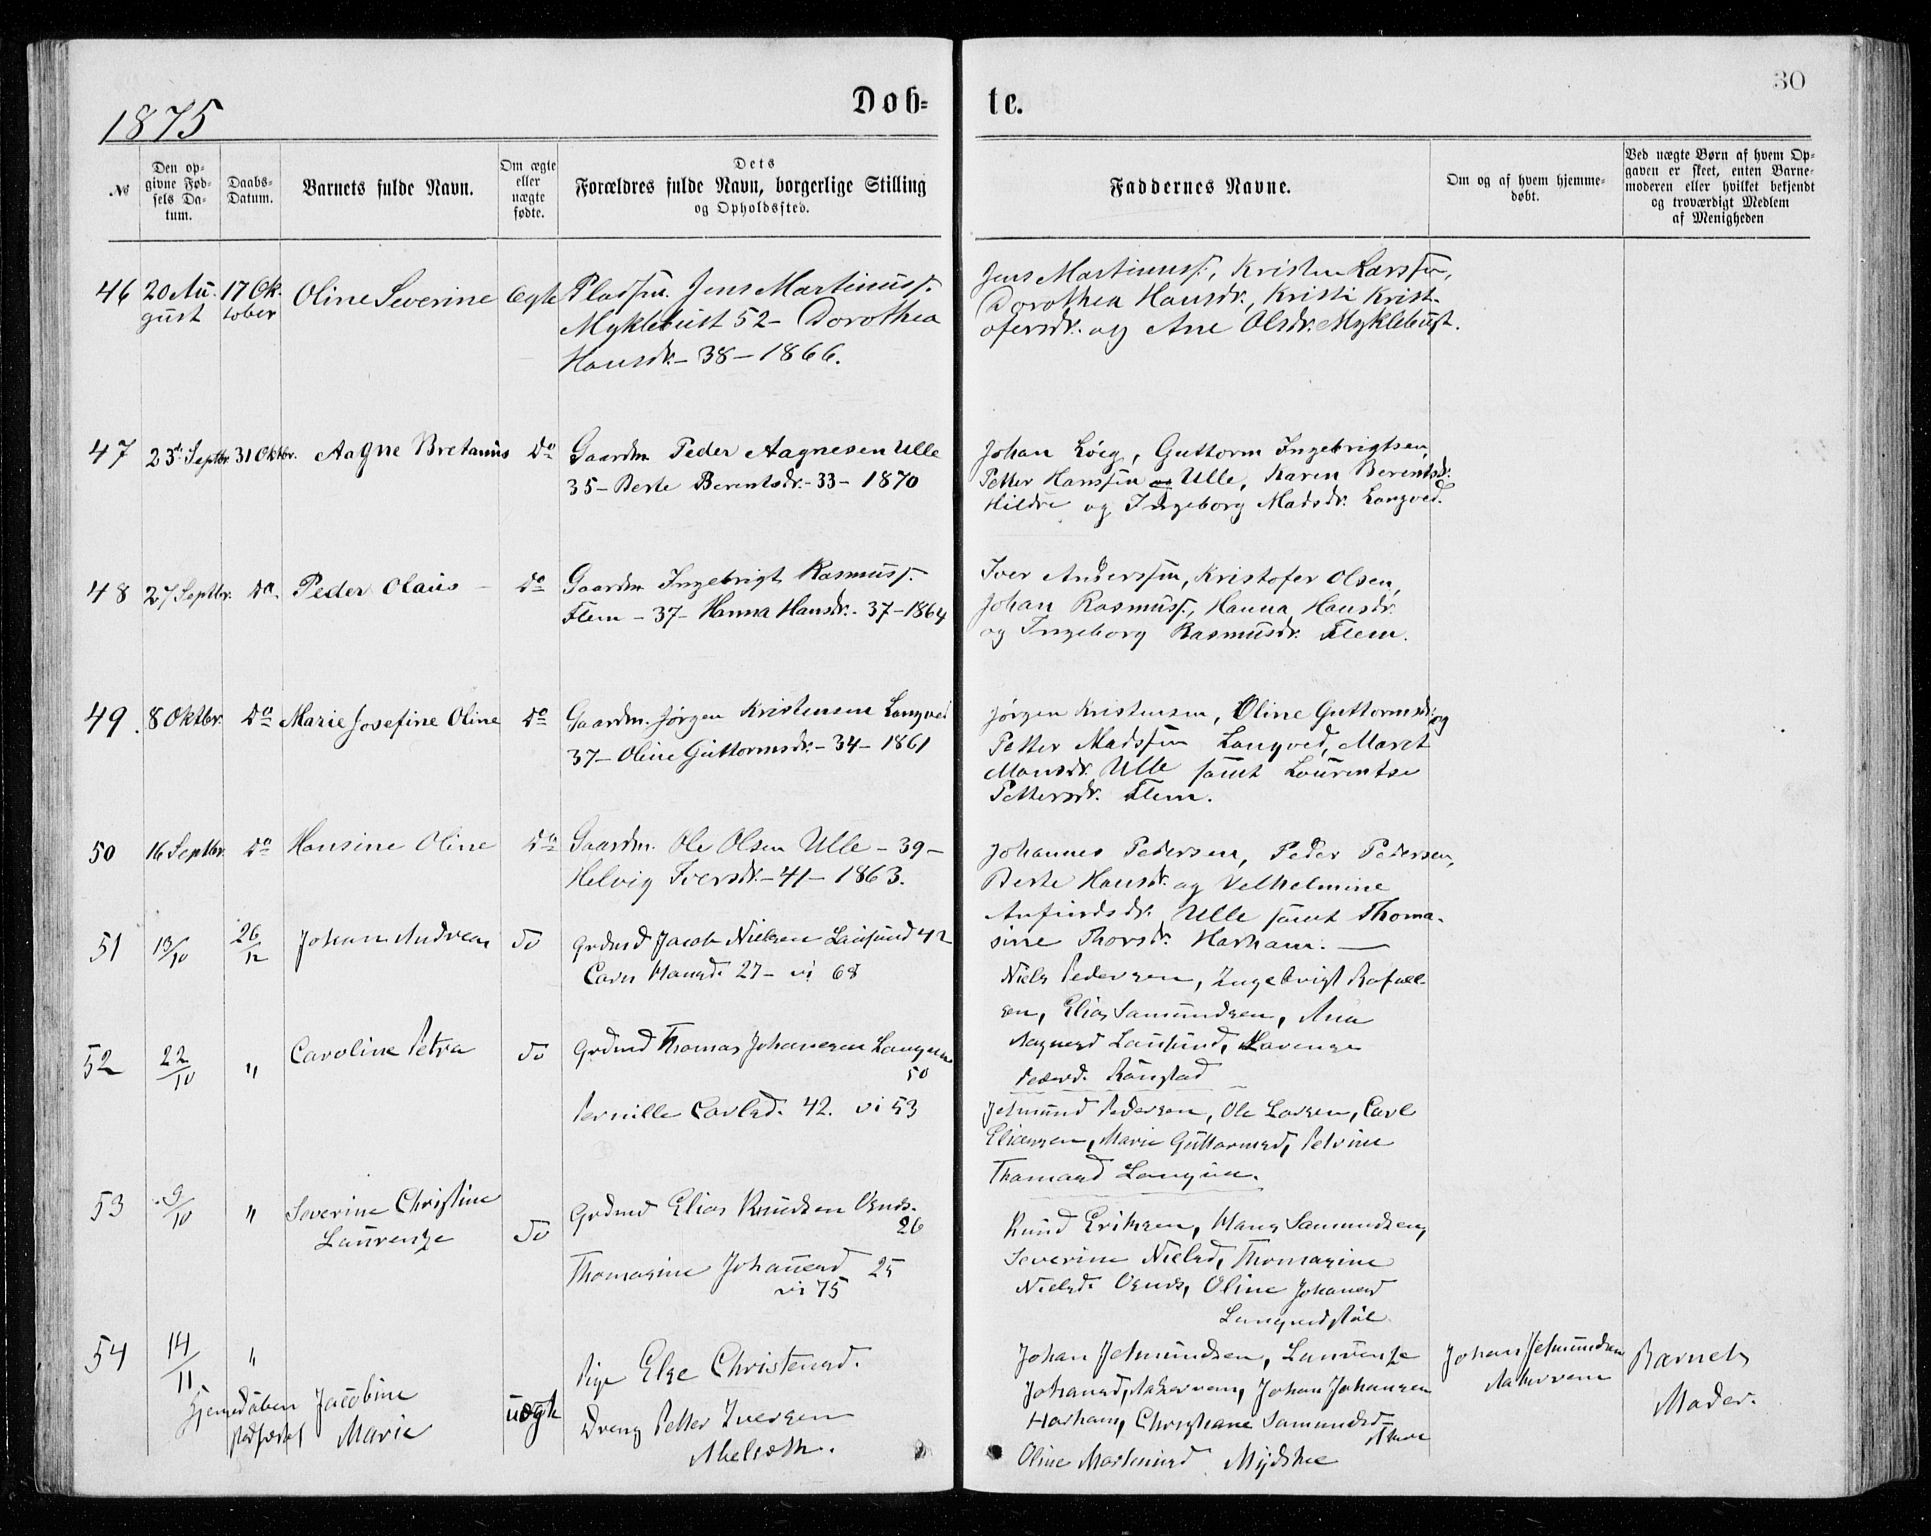 1875
Døb-
te.
30
№
Den op-
givne Fød-
sels Da-
tum.
Daabs-
Datum.
Barnets fulde Navn.
Om ægte
eller
uægte
fødte.
Dets
Forældres fulde Navn, borgerlige Stilling
og Opholdssted.
Faddernes Navne.
Om og af hvem hjemme-
døbt.
Ved uægte Børn af hvem Op-
gaven er skeet, enten Barne-
moderen eller hvilket bekjendt
og troværdigt Medlem
af Menigheden
46
20 Au-
gust
17 Ok-
tober
Oline Severine
Ægte
Pladsm. Jens Martinuss.
Myklebust 52 - Dorothea
Hansdr. - 38 - 1866.
Jens Martinuss., Kristen Larssen,
Dorothea Hansdr., Kristi Krist-
ofersdr. og Ane Olsdr. Myklebust.
47
23d Septbr.
31 Oktbr.
Aagne Bretanus
Do
Gaardm. Peder Aagnesen Ulle
35 - Berte Berentsdr. - 33 - 1870
Johan Löeg, Guttorm Ingebrigtsen,
Petter Hanssen Ulle, Karen Berentsdr.
Hildre og Ingeborg Madsdr. Langved.
48
27 Septbr.
Do.
Peder Olaus -
Do
Gaardm. Ingebrigt Rasmuss.
Flem - 37 - Hanna Hansdr. - 37 - 1864
Iver Anderssen, Kristofer Olsen,
Johan Rasmuss., Hanna Hansdr.
og Ingeborg Rasmusdr. Flem.
49.
8 Oktbr.
Do
Marie Josefine Oline
Do
Gaardm. Jørgen Kristensen Langved
37 - Oline Guttormsdr. - 34 - 1861
Jørgen Kristensen, Oline Guttormsdr. og
Petter Madssen Langved, Maret
Monsdr. Ulle samt Laurentse
Pettersdr. Flem.
50
16 Septbr.
Do
Hansine Oline
Do
Gaardm. Ole Olsen Ulle - 39 -
Helvig Iversdr. - 41 - 1863.
Johannes Pedersen, Peder Pedersen,
Berte Hansdr. og Velhelmine
Anfindsdr. Ulle samt Thoma-
sine Thorsdr. Harham. -
51
13/10
26/12
Johan Andreas
do
Grdmd Jacob Nielsen Lausund 42
Carn Hansd. 27 - vi 68
Niels Pedersen, Ingebrigt Rafael-
sen, Elias Samundsen, Ana
Aagnesd Lausund, Lavense
Pedersd. Rønstad
52
22/10
"
Caroline Petra
do
Grdmd Thomas Johansen Langven
50
Pernille Carlsd. 42. vi 53
Jetmund Pedersen, Ole Larsen, Carl
Eliassen, Marie Guttormsd, Petrine
Thomasd Langven.
53
9/10
"
Severine Christine
Laurenze
do
Grdmd Elias Knudsen Ognds.
26
Thomasine Johansd 25
vi 75
Knud Eriksen, Hans Samundsen,
Severine Nielsd, Thomasine
Nielsd. Ognds, Oline Johansd
Langvedstøl
54
14/11
"
Hjemedøben
stadfæstet
Jacobine
Marie
uægte
Pige Else Christensd.
Dreng Petter Iversen
Abelseth.
Johan Jetmundsen, Laurense
Johansd, Aakervem, Johan Johansen
Harham, Christiane Samundsd
Oline Martinusd
Johan Jetmundsen
Aakervem
Barnets
Moder.